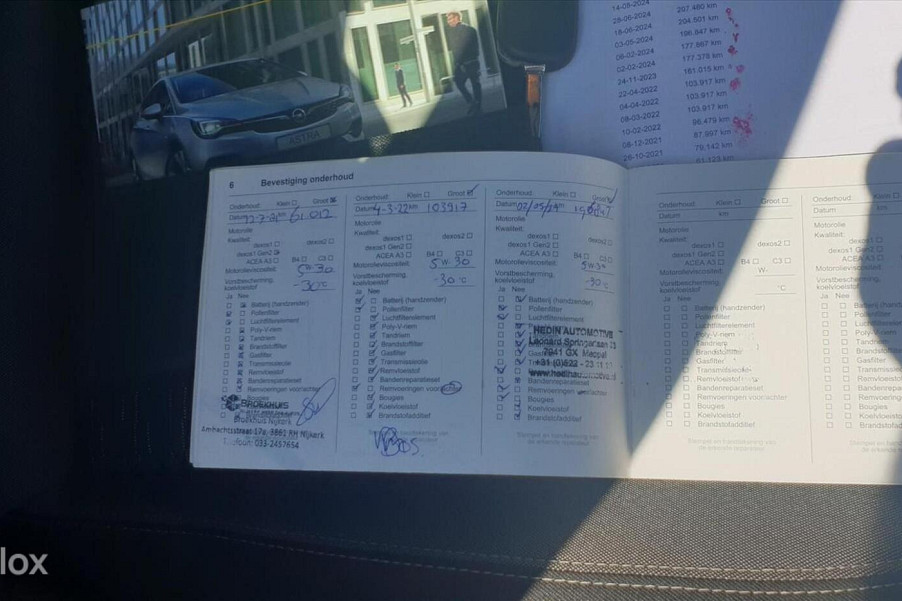 ASTRA
14-05-2024 207.480 km
28-06-2024 204.501 km
18-06-2024 196.847 km
03-05-2024 177.667 km
06-02-2024 177.378 km
02-02-2024 161.015 km
24-11-2023 103.917 km
22-04-2022 103.917 km
04-04-2022 103.917 km
08-03-2022 96,479 km
10-02-2022 87,997 km
08-12-2021 79,142 km
26-10-2021
6 Bevestiging onderhoud
Onderhoud: Klein Groot
Datum km 61.012
Motorolie
Kwaliteit:
dexos1 dexos2
dexos1 Gen2
ACEA A3 B4 C3
Motorolieviscositeit: 5 30
Vorstbescherming, koelvloeistof -30°C
Ja Nee
Batterij (handzender)
Pollenfilter
Luchtfilterelement
Poly-V-riem
Tandriem
Brandstoffilter
Gasfilter
Transmissieolie
Remvloeistof
Bandenreparatieset
Remvoeringen voor/achter
Bougies
BROEKHUIS
Broekhuis Nijkerk
Ambachtsstraat 17a, 3861 RH Nijkerk
Telefoon: 033-2457654
Onderhoud: Klein Groot
Datum 4-3-22 km 103917
Motorolie
Kwaliteit:
dexos1 dexos2
dexos1 Gen2
ACEA A3 B4 C3
Motorolieviscositeit: 5 W- 30
Vorstbescherming, koelvloeistof -30°C
Ja Nee
Batterij (handzender)
Pollenfilter
Luchtfilterelement
Poly-V-riem
Tandriem
Brandstoffilter
Gasfilter
Transmissieolie
Remvloeistof
Bandenreparatieset
Remvoeringen voor/achter
Bougies
Koelvloeistof
Brandstofadditief
Onderhoud: Klein Groot
Datum 02/05/24 km
Motorolie
Kwaliteit:
dexos1 dexos2
dexos1 Gen2
ACEA A3 B4 C3
Motorolieviscositeit: 5 W-30
Vorstbescherming, koelvloeistof -30°C
Ja Nee
Batterij (handzender)
Pollenfilter
Luchtfilterelement
HEDIN AUTOMOTIVE
Leonard Springerlaan
7941 GX Meppel
+31 (0)522 - 23
www.hedinautomotive.nl
Remvloeistof
Bandenreparatieset
Remvoeringen voor/achter
Bougies
Koelvloeistof
Brandstofadditief
Stempel en handtekening van de erkende reparateur
Onderhoud: Klein Groot
Datum km
Motorolie
Kwaliteit:
dexos1 dexos2
dexos1 Gen2
ACEA A3 B4 C3
Motorolieviscositeit: W-
Vorstbescherming, koelvloeistof °C
Ja Nee
Batterij (handzender)
Pollenfilter
Luchtfilterelement
Poly-V-riem
Tandriem
Brandstoffilter
Gasfilter
Transmissieolie
Remvloeistof
Bandenreparatieset
Remvoeringen voor/achter
Bougies
Koelvloeistof
Brandstofadditief
Stempel en handtekening van de erkende reparateur
Onderhoud: Klein
Datum km
Motorolie
Kwaliteit:
dexos1
dexos1 Gen2
ACEA A3
Motorolieviscositeit:
Vorstbescherming, koelvloeistof
Ja Nee
Batterij (handzender)
Pollenfilter
Luchtfilterelement
Poly-V-riem
Tandriem
Brandstoffilter
Gasfilter
Transmissieolie
Remvloeistof
Bandenreparatieset
Remvoeringen
Bougies
Koelvloeistof
Brandstofadditief
lox